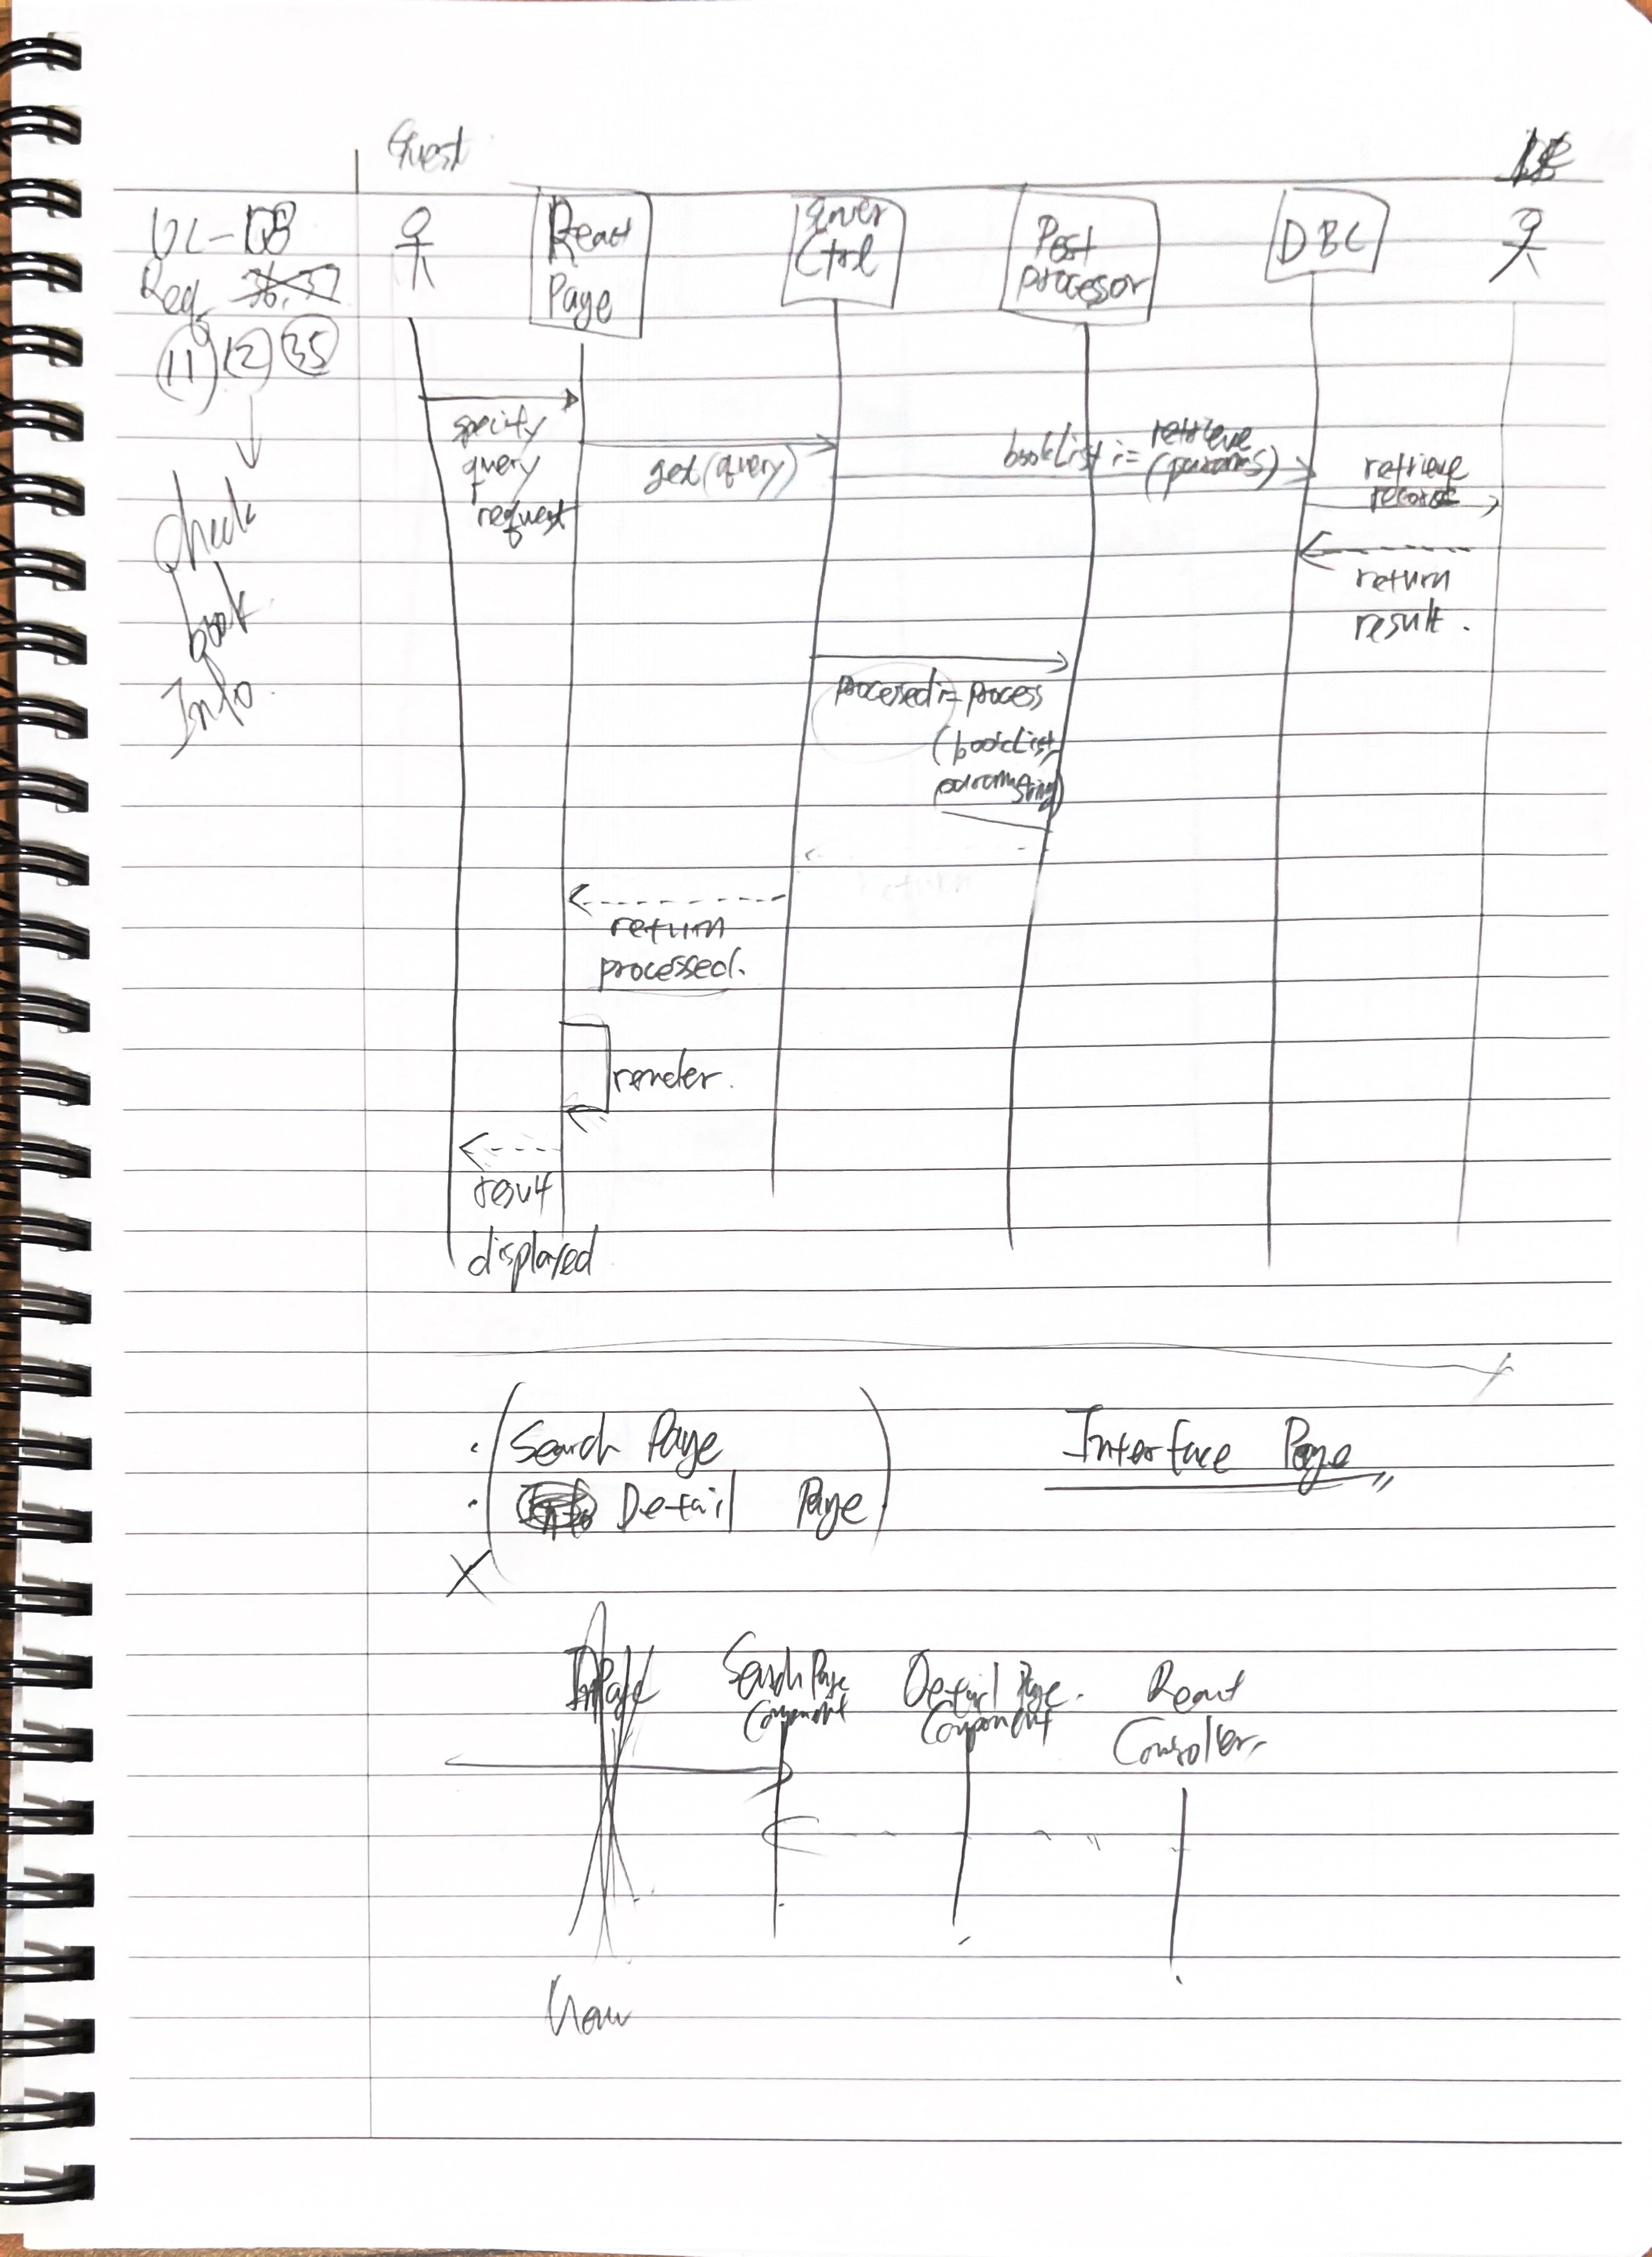 Guest
UC-08
Req. 36, 37
11 12 35
Check
book
Info.
React
Page
Ctrl
Post
processor
DBC
specify
query
request
get(query)
bookList := retrieve
(params)
retrieve
records
return
result.
processed := process
(bookList,
param string)
return
processed.
render.
result
displayed
Search Page
Detail Page
Interface Page
Search Page
Component
Detail Page
Component
React
Controller